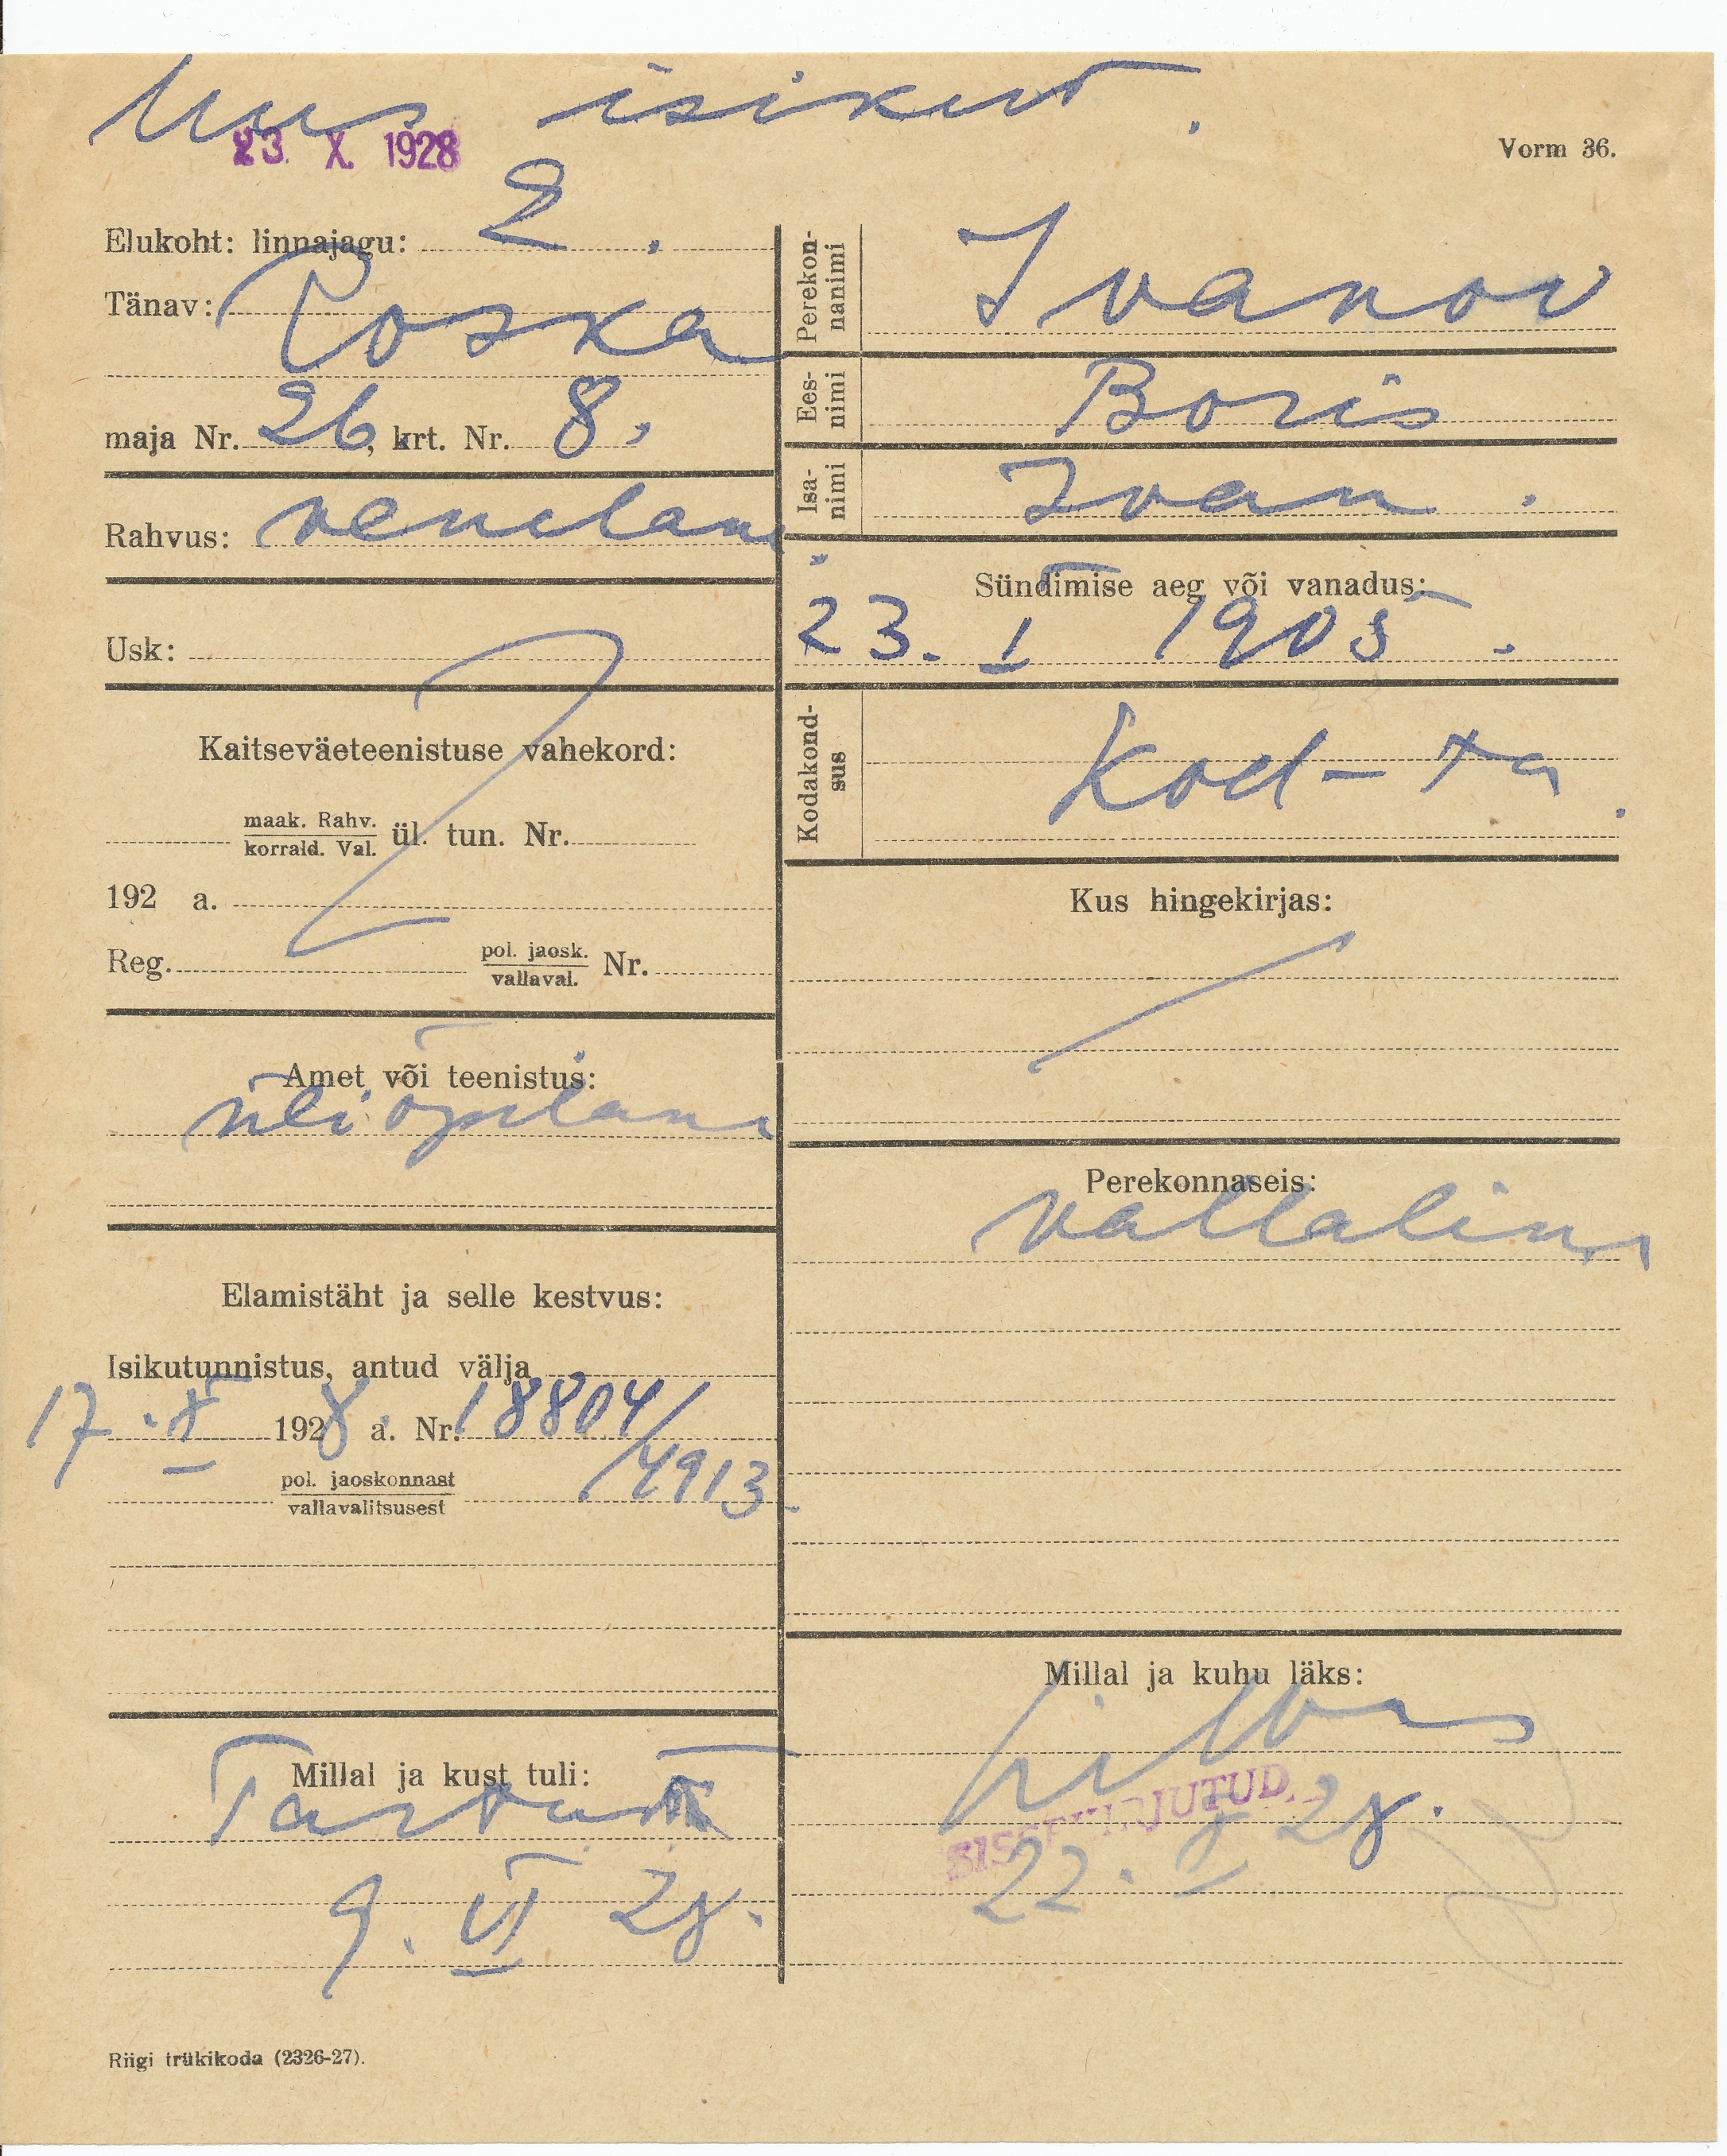 Uus isikut.
23. X. 1928
Vorm 36.
Elukoht: linnajagu: 2.
Tänav: Poska
maja Nr. 26, krt. Nr. 8.
Rahvus: venelane.
Usk:
Kaitseväeteenistuse vahekord:
maak. Rahv.
korrald. Val. ül. tun. Nr.
192 a.
Reg. pol. jaosk.
vallaval. Nr.
Amet või teenistus:
üliõpilane
Elamistäht ja selle kestvus:
Isikutunnistus, antud välja
17. X 1928 a. Nr. 18804/
/4913.
pol. jaoskonnast
vallavalitsusest
Millal ja kust tuli:
Tartust
9. VI 28.
Perekonnanimi
Ivanov
Eesnimi
Boris
Isanimi
Ivan.
Sündimise aeg või vanadus:
23. I 1905.
Kodakondsus
Kod-ta.
Kus hingekirjas:
Perekonnaseis:
vallaline
Millal ja kuhu läks:
SISSEKIRJUTUD.
22. X 28.
Riigi trükikoda (2326-27).